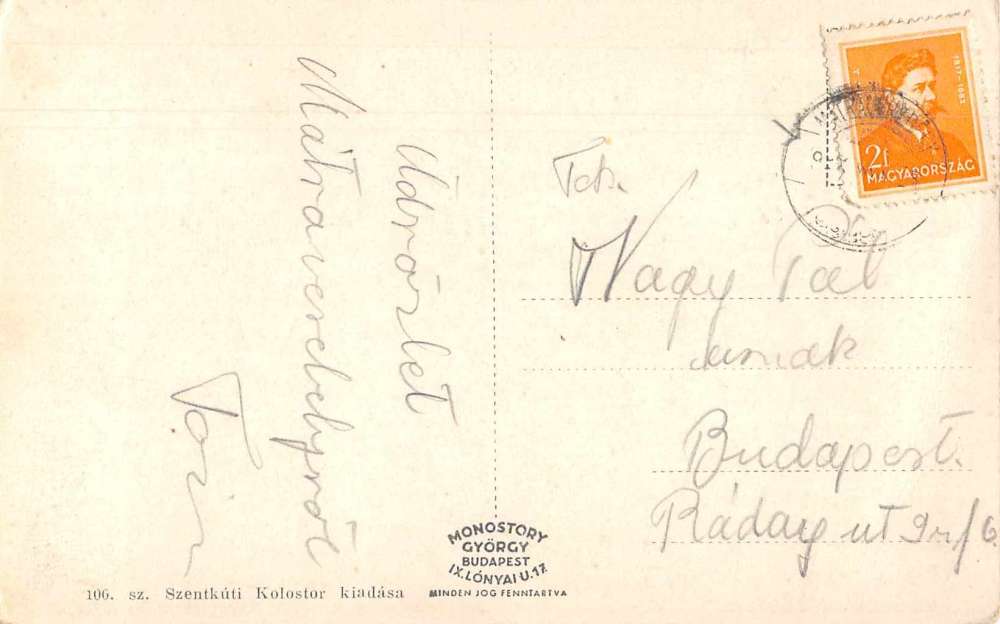 Üdvözlet
Mátraverebélyről
Tek.
Nagy Pál
urnak
Budapest.
Ráday ut
2f
MAGYARORSZÁG
1817-1882
MONOSTORY
GYÖRGY
BUDAPEST
IX. LÓNYAI U. 17.
MINDEN JOG FENNTARTVA
106. sz. Szentkúti Kolostor kiadása